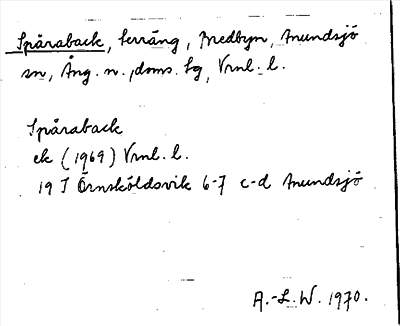 Spåraback, terräng, Bredbyn, Anundsjö
sn, Ång. n. doms. tg, Vrnl. l.
Spåraback
ek (1969) Vrnl. l.
19 I Örnsköldsvik 6-7 c-d Anundsjö
A.-L. W. 1970.